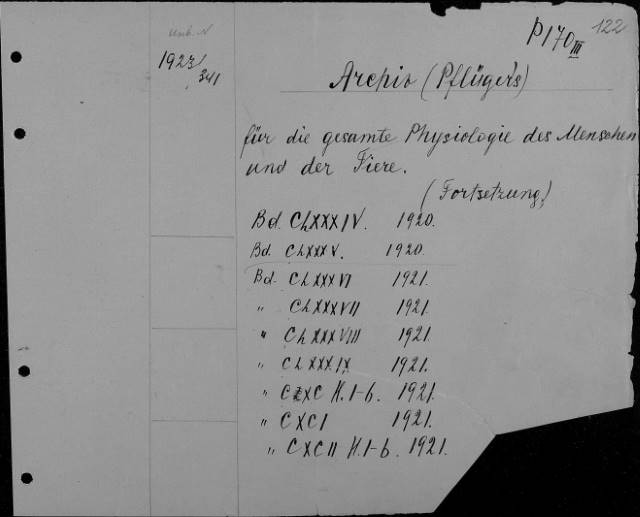 P170 III 122
1923/341
Archiv (Pflüger's)
für die gesamte Physiologie des Menschen
und der Tiere.
(Fortsetzung)
Bd. CLXXXIV. 1920.
Bd. CLXXXV. 1920.
Bd. CLXXXVI 1921.
" CLXXXVII 1921.
" CLXXXVIII 1921.
" CLXXXIX 1921.
" CXC H. 1-6. 1921.
" CXCI 1921.
" CXCII H. 1-6. 1921.